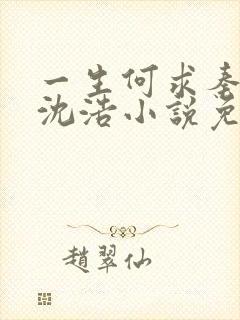 一生何求秦
沈浩小說免
趙翠仙